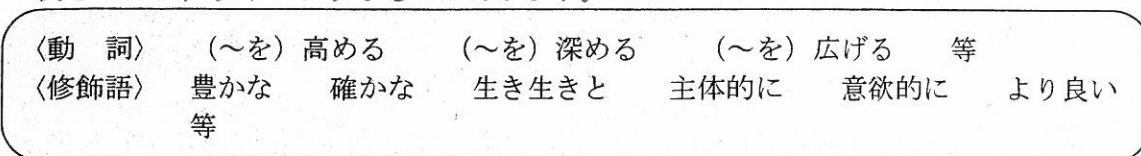 〈動　詞〉　（～を）高める　　（～を）深める　　（～を）広げる　　等
〈修飾語〉　豊かな　　確かな　　生き生きと　　主体的に　　意欲的に　　より良い
等